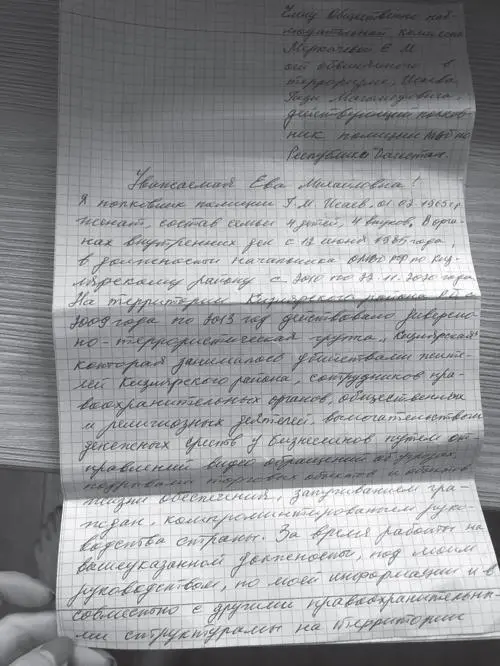 Члену Общественно наб-
людательной комиссии
Меркачевой Е М
от обвиняемого в
терроризме, Исаева
Гази Магомедовича
действующий полков-
ник полиции МВД по
Республике Дагестан.
Уважаемая Ева Михайловна!
Я полковник полиции Г.М. Исаев, 01.07.1965 г.р.
женат, состав семьи 4 детей, 4 внуков. В орга-
нах внутренних дел с 12 июня 1985 года,
в должности начальника ОМВД РФ по Киз-
лярскому району с 2010 по 23.11.2020 года
На территории Кизлярского района РД с
2009 года по 2013 год действовало диверсио-
но-террористическая група „Кизлярская"
которая занималось убийствами жите-
лей Кизлярского района, сотрудников пра-
воохранительных органов, общественных
и религиозных деятелей, вымогательством
денежных средств у бизнесменов путем от-
правлений видео обращений от угрозах,
подрывами торговых объектов и объектов
жизни обеспечения, запугиванием гра-
ждан, компроминтированием руко-
водства страны. За время работы на
вышеуказанной должности, под моим
руководством, по моей информации и в
совместно с другими правоохранительны-
ми структурами на территории